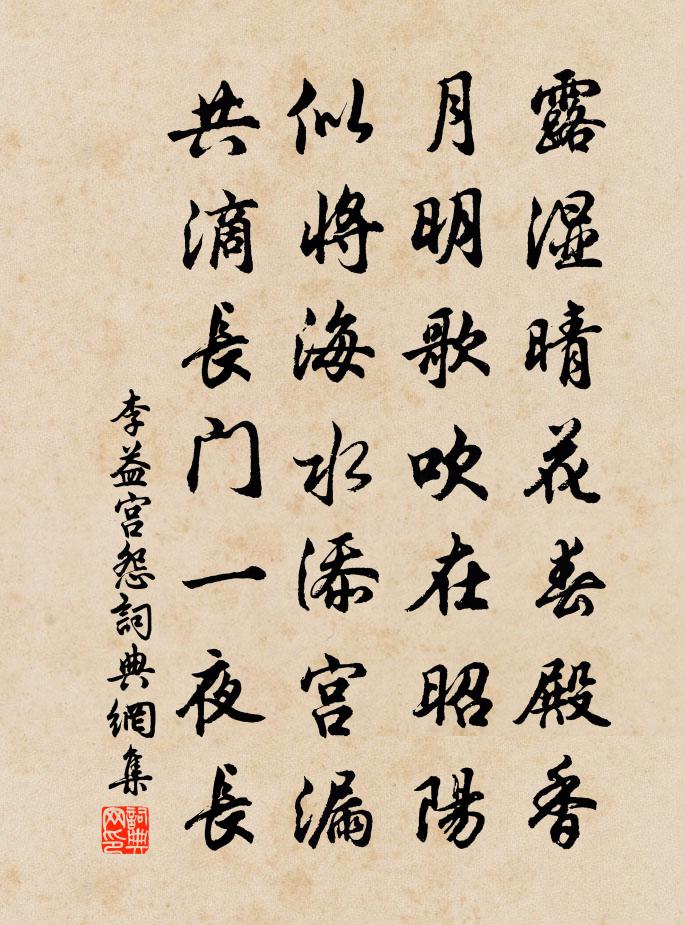 露湿晴花春殿香
月明歌吹在昭陽
似將海水添宮漏
共滴長门一夜長
李益宮怨詞典網集
詞典网印